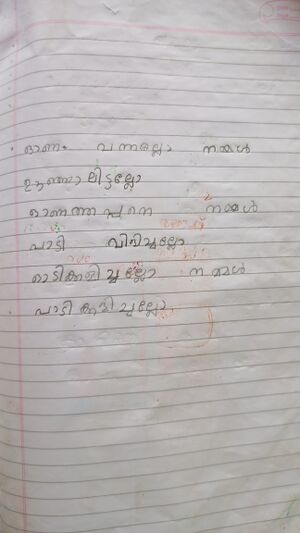 ഓണം വന്നല്ലോ നമ്മൾ
ഊഞ്ഞാലിട്ടല്ലോ
ഓണത്തപ്പനെ നമ്മൾ
പാട്ടി വിളിച്ചല്ലോ
ഓടികളിച്ചല്ലോ നമ്മൾ
പാടി കളിച്ചല്ലോ